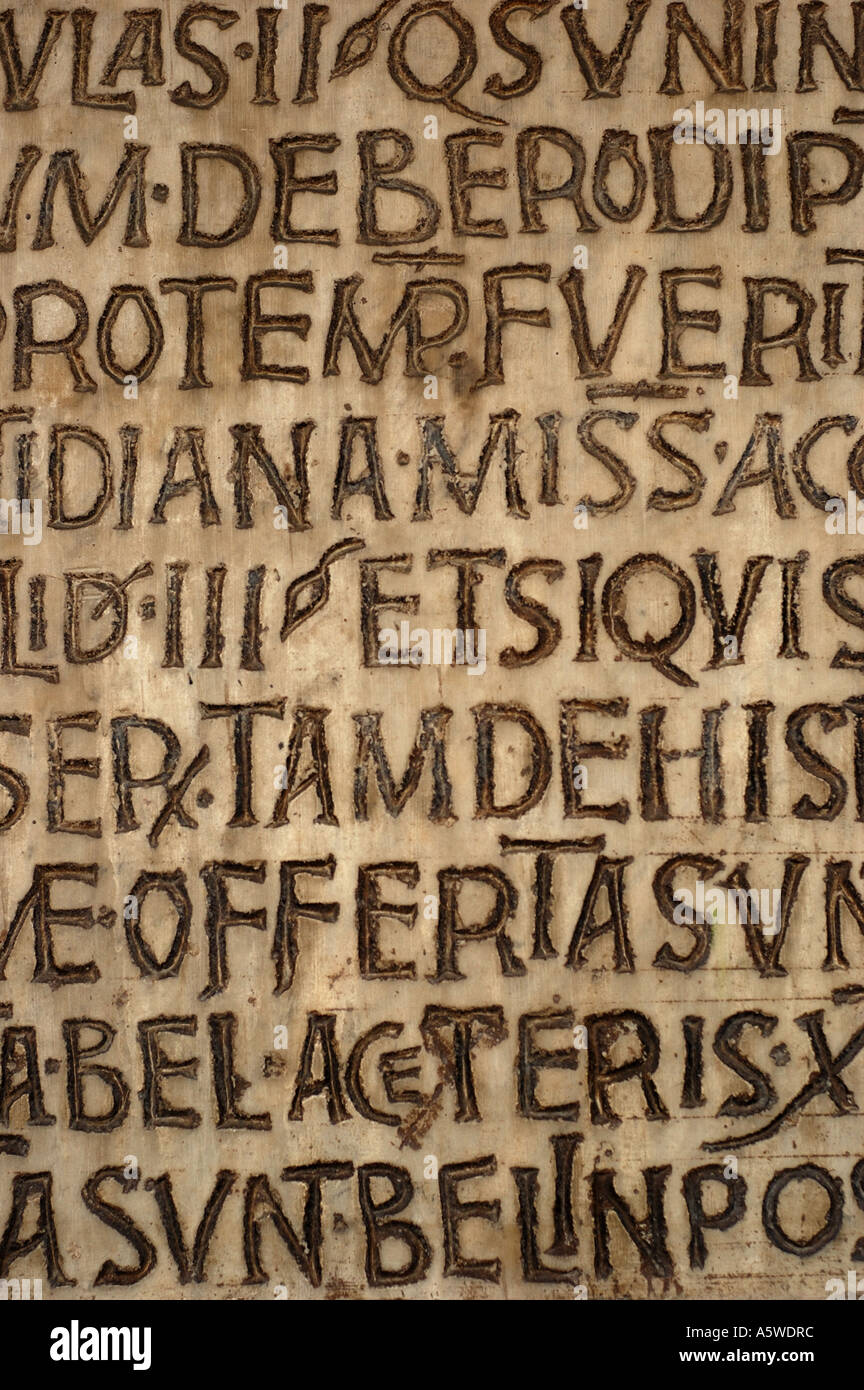 VLAS·II QSVNIN
M·DEBERODIP
ROTEMP̅·FVERI
IDIANA·MISS̅·ACC
LID·III ETSIQVIS
SER℞·TAMDEHIS
Æ·OFFERTASVN
A·BEL·ACETERIS·X
ASVNT·BELINPOS
alamy
Image ID: A5WDRC
www.alamy.com